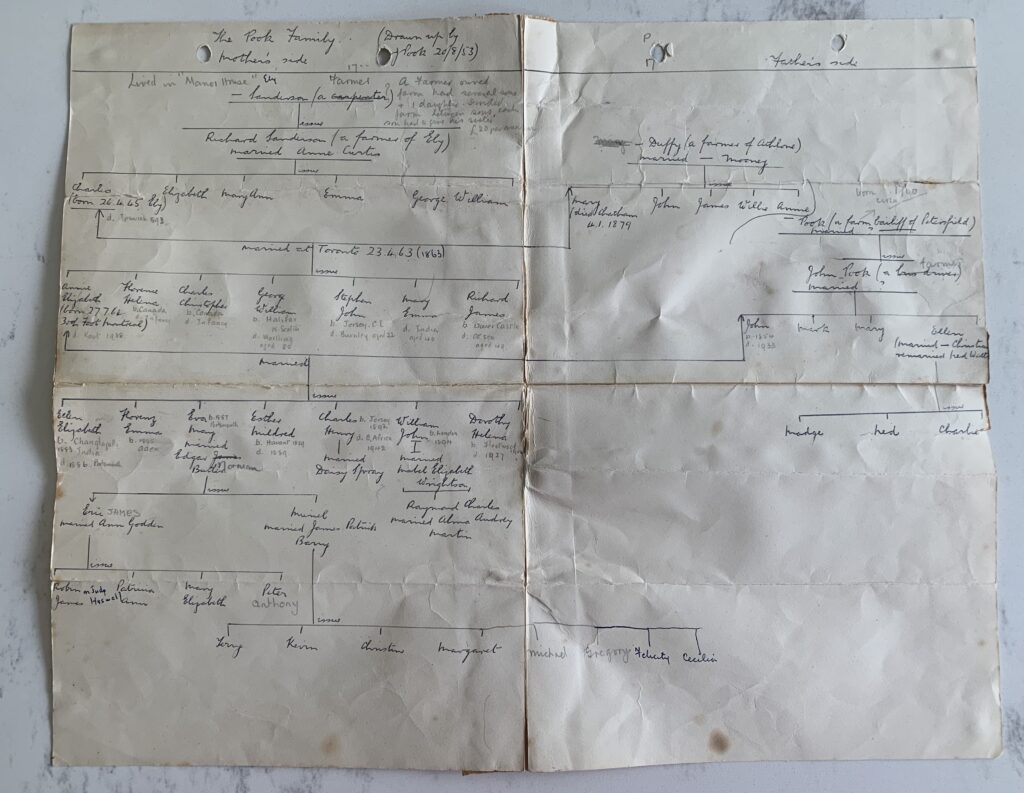 The Pook Family.
Mother's side
(Drawn up by
J Pook 20/8/53)
Father's side
Lived in "Manor House" Ely
Farmer
- Sanderson (a carpenter)
A Farmer owned
farm had several sons
+ 1 daughter. Divided
farm between sons, each
son had to give his sister
£20 per annum
issue
Richard Sanderson (a farmer of Ely)
married Annie Curtis
issue
Charles
(born 26.4.45 Ely)
d. Ipswich
Elizabeth
Mary Ann
Emma
George
William
- Duffy (a farmer of Athlone)
married - Mooney
issue
Mary
(died Chatham
4.1.1879
John
James
Willie
Annie
born
- Pook (a farm bailiff of Petersfield)
married "
issue
farmer
John Pook (a bus driver)
married "
married at Toronto 23.4.63 (1863)
issue
Annie
Elizabeth
(born 27.7.64
3rd of Foot Montreal)
d. Kent 1938
Florence
Helena
b. Canada
d. Infancy
Charles
Christopher
b. Canada
d. Infancy
George
William
b. Halifax
N. Scotia
d. Worthing
aged 80
Stephen
John
b. Jersey. C.I.
d. Burnley aged 22
Mary
Emma
d. India
aged 40
Richard
James
b. Dover Castle
aged 40
John
b. 1854
d. 1933
Mark
Mary
Ellen
(married - Christian
remarried Ned Watts
married
issue
Ellen
Elizabeth
b. Changlapet,
1883 India
d. 1886. Portsmouth
Florence
Emma
b. 1885
Aden
Eva b. 1887
Portsmouth
May
married
Edgar James
Norman
Butler
Esther
Mildred
b. Havant 1889
d. 1939
Charles b. Jersey
1892
Henry d. B. Africa
1942
married
Daisy Spray
William
John
1894
married
Mabel Elizabeth
Wrightson
Dorothy
Helena
d. 1927
issue
Madge
Ned
Charlie
issue
Eric JAMES
married Ann Godden
Muriel
married James Patrick
Barry
Raymond Charles
married Alma Audrey
Martin
issue
Robin
James
Patrina
Ann
Mary
Elizabeth
Peter
Anthony
issue
Terry
Kevin
Christine
Margaret
Michael
Gregory
Felicity
Cecilia